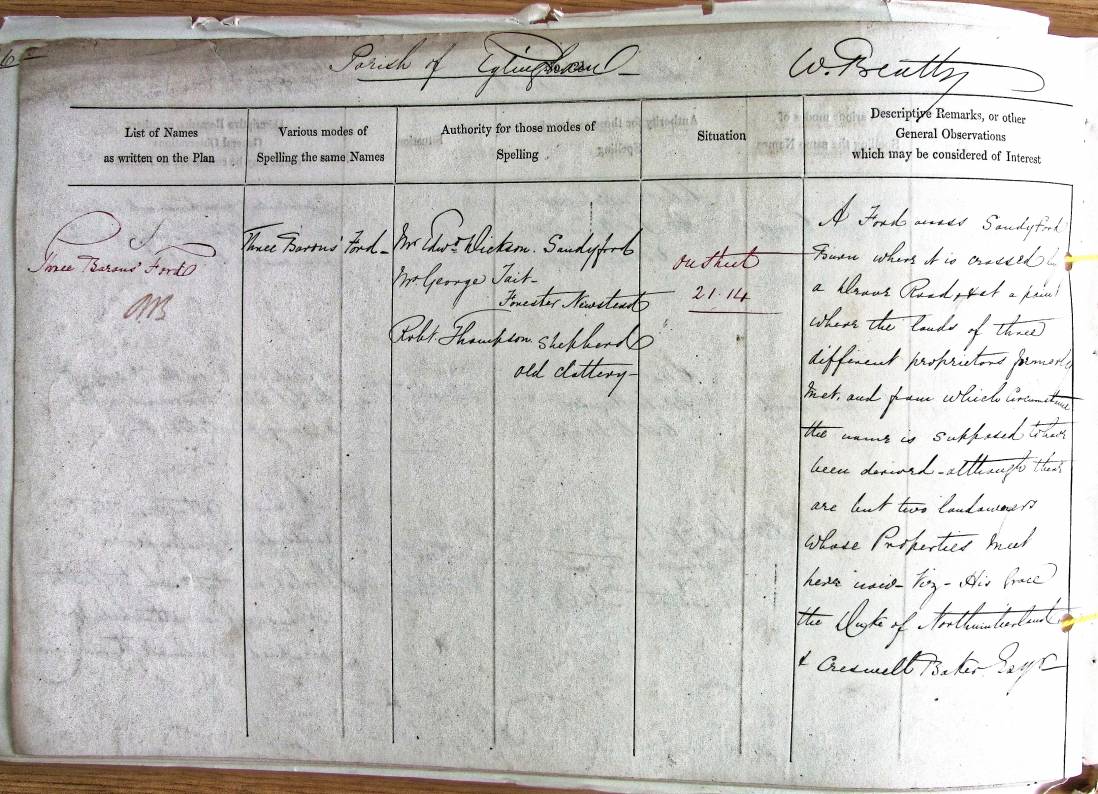 Parish of Eglingham
W. Beatty
List of Names
as written on the Plan
Various modes of
Spelling the same Names
Authority for those modes of
Spelling
Situation
Descriptive Remarks, or other
General Observations
which may be considered of Interest
Three Barons' Ford
Three Barons' Ford -
Mr Edwd. Dickson. Sandyford
Mr George Tait -
Forester Newstead
Robt. Thompson Shepherd
old Clattery -
On Sheet
21.14
A Ford across Sandyford
Burn where it is crossed by
a Drove Road, & at a point
where the lands of three
different proprietors formerly
Met, and from which Circumstance
the name is supposed to have
been derived - although there
are but two landowners
whose Properties Meet
here now - Viz - His Grace
the Duke of Northumberland
& Creswell Baker Esqr